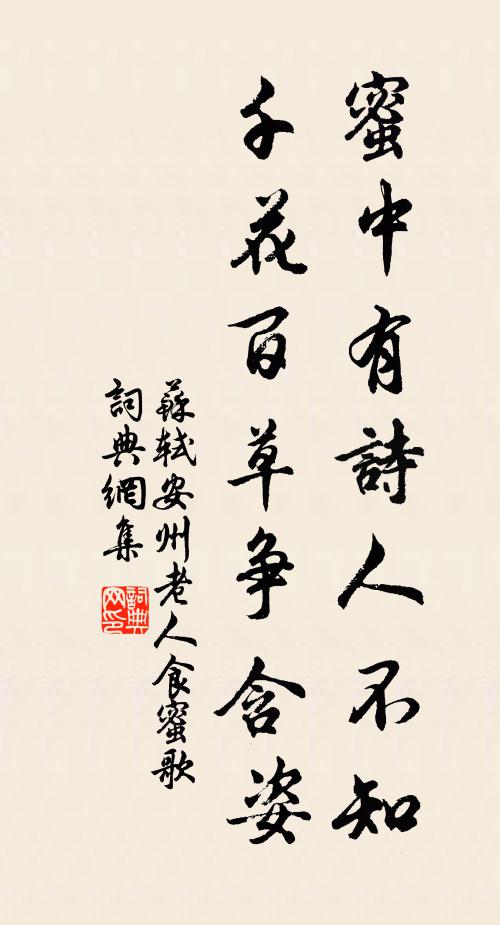 蜜中有詩人不知
千花百草争含姿
蘇轼安州老人食蜜歌
詞典網集
詞典网印